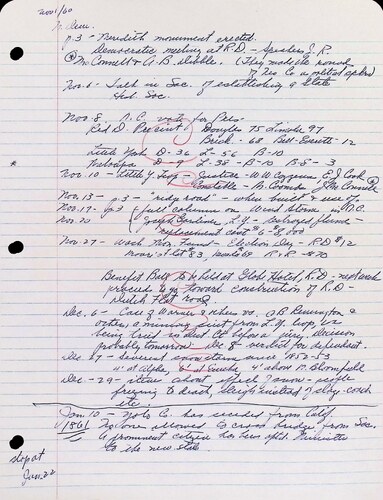 Nov 1/60
p.3 - Meredith monument erected.
Democratic meeting at R.D. - Speakers J.R.
McConnell & A.B. Dibble. (They made the rounds
of Nev. Co. as political spkrs)
Nov. 6 - Talk in Sac. of establishing a State
Hist Soc.
Nov. 8. N.C. vote for Pres -
Red D. Precinct Douglas 75 Lincoln 97
Breck. 68 Bell-Everett - 12
Little York D-36 L-56 B-10
Walloupa D-9 L-35 - B-10 B.E - 3
Nov. 10 - Little Y Twp - Justices - W W Cozzens, E.J. Cook
Constable - B. Coombs J McConnell
Nov. 13 - p.3 - "ridge road" - when built & use of.
Nov. 17 - p.3 (full column on Wind storm in N.C.
Nov. 20 L.Y. - Destroyed flume -
replacement cost $6-$8,000
Nov 27 - Wash. Mon. Fund - Election Day - R.D $12
Moore's Flat $83,
Benefit Ball to be held at Hotel, R.D - next week
proceeds to go toward construction of R.D -
Dutch Flat road.
Dec. 6 - Case of Warner & others vs. O B Dewington &
others, a mining suit from L.Y. twp, is
being tried in Dist Ct before a jury, decision
probably tomorrow Dec 8 - verdict for defendant.
Dec 27 - Severest snow storm since 1852-53
11" at Alpha, 6" at Smiths 4" above N. Bloomfield
Dec. - 29 - items about effect of snow - people
freezing to death, sleighs instead of stage-coach
etc.
Jan. 10 - Note C. has seceded from Calif.
1861 No one allowed to cross bridge from Sac.
A prominent citizen has been aptd. Minister
to the new state
stop at
Jan. 22